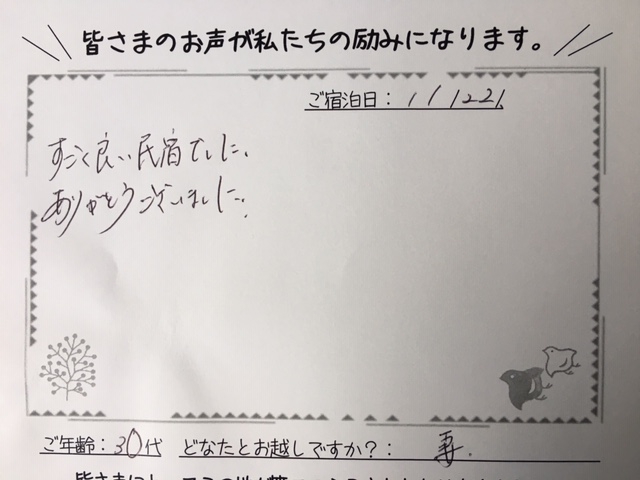 皆さまのお声が私たちの励みになります。
ご宿泊日：11/22
すごく良い民宿でした。
ありがとうございました。
ご年齢：30代 どなたとお越しですか？：妻.